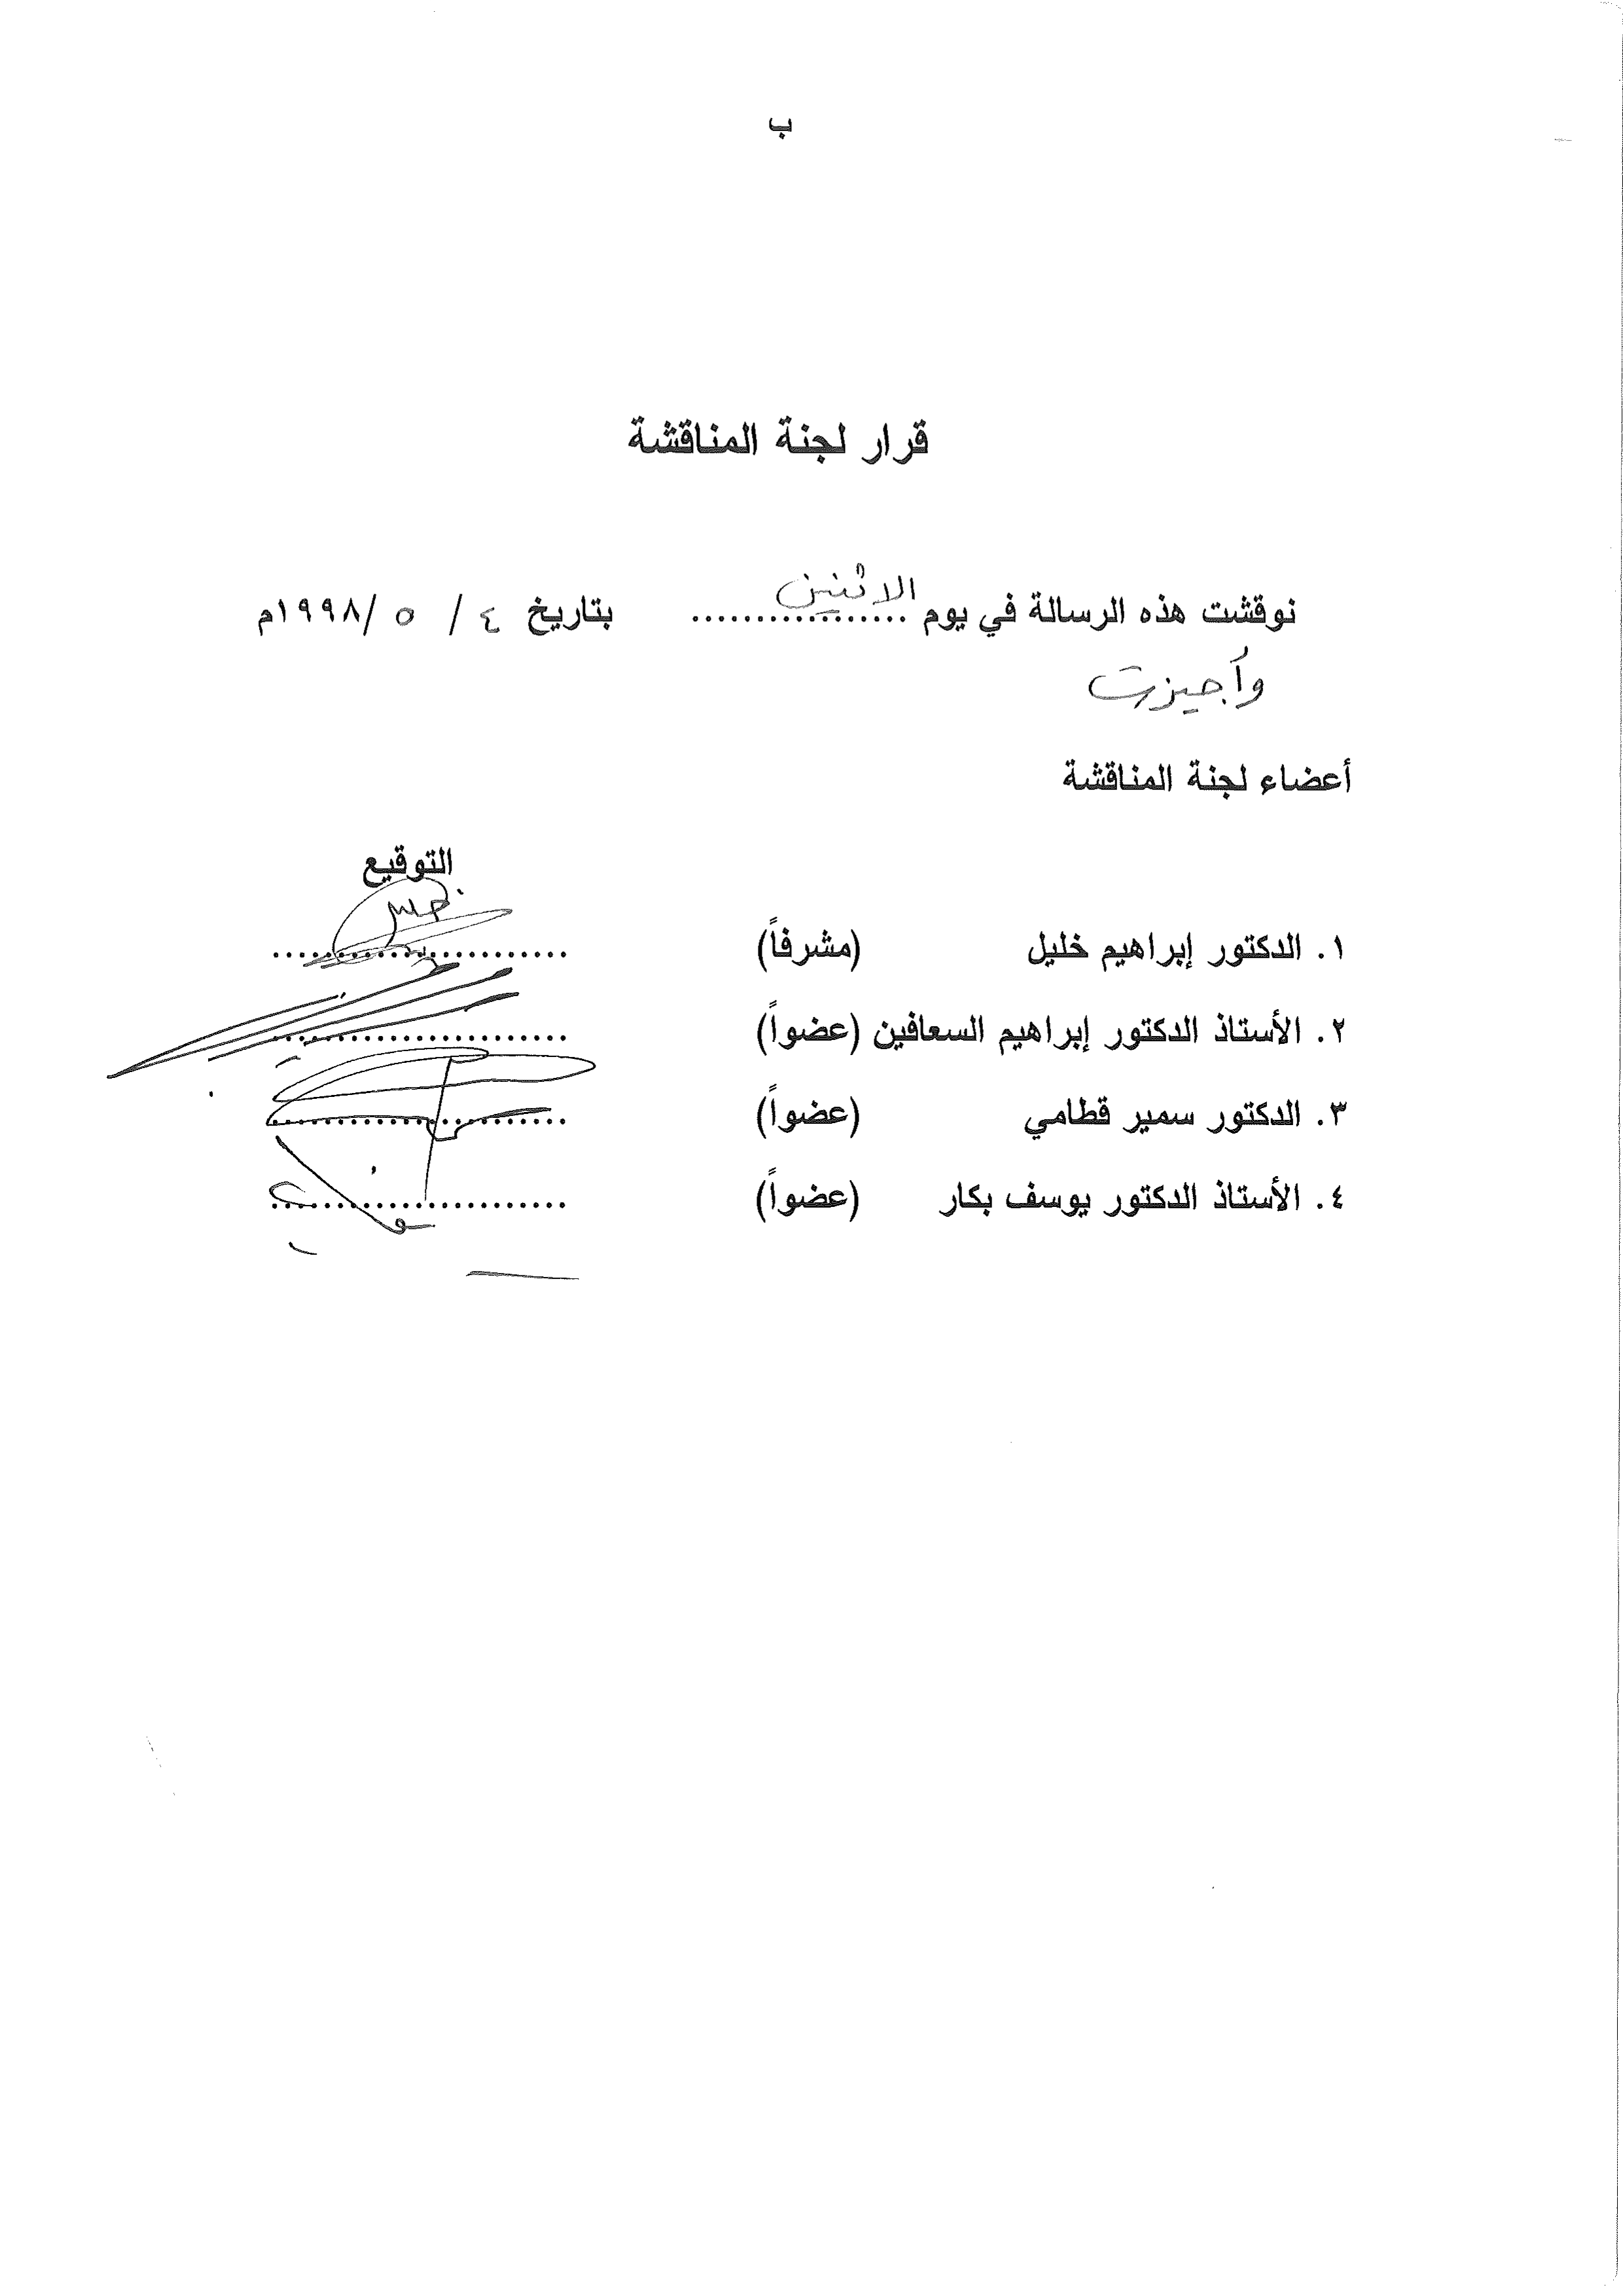 ب
قرار لجنة المناقشة
نوقشت هذه الرسالة في يوم الاثنين بتاريخ ٤ / ٥ /١٩٩٨م
وأجيزت
أعضاء لجنة المناقشة
التوقيع
١. الدكتور إبراهيم خليل (مشرفاً) ......................
٢. الأستاذ الدكتور إبراهيم السعافين (عضواً) ......................
٣. الدكتور سمير قطامي (عضواً) ......................
٤. الأستاذ الدكتور يوسف بكار (عضواً) ......................